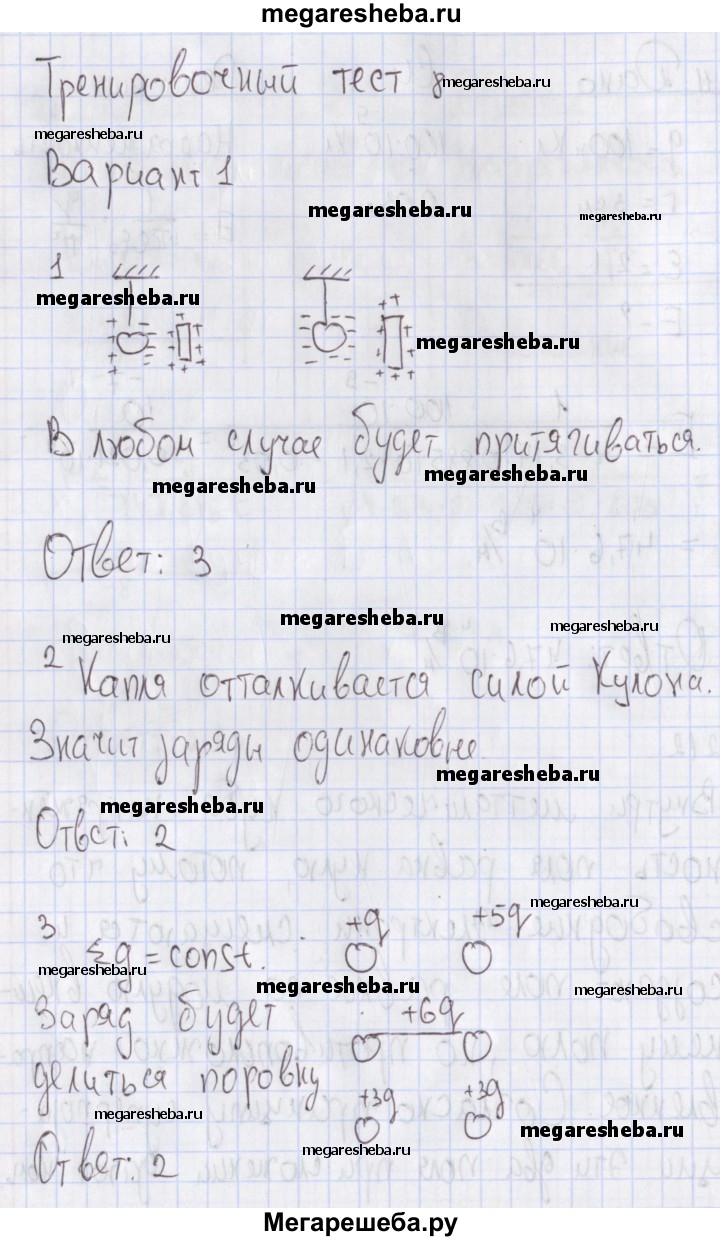 megaresheba.ru
Тренировочный тест 8
megaresheba.ru
megaresheba.ru
Вариант 1
megaresheba.ru
megaresheba.ru
1
megaresheba.ru
megaresheba.ru
В любом случае будет притягиваться.
megaresheba.ru
megaresheba.ru
Ответ: 3
megaresheba.ru
megaresheba.ru
megaresheba.ru
2 Капля отталкивается силой Кулона.
Значит заряды одинаковые.
megaresheba.ru
megaresheba.ru
Ответ: 2
megaresheba.ru
3 Σq = const. +q +5q
megaresheba.ru
megaresheba.ru
megaresheba.ru
Заряд будет +6q
делиться поровну
+3q +3q
megaresheba.ru
megaresheba.ru
megaresheba.ru
Ответ: 2
Мегарешеба.ру